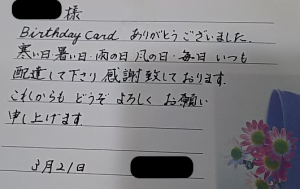 様
Birthday Card ありがとうございました.
寒い日・暑い日・雨の日 風の日・毎日 いつも
配達して下さり 感謝致しております.
これからも どうぞ よろしく お願い
申し上げます.
3月21日